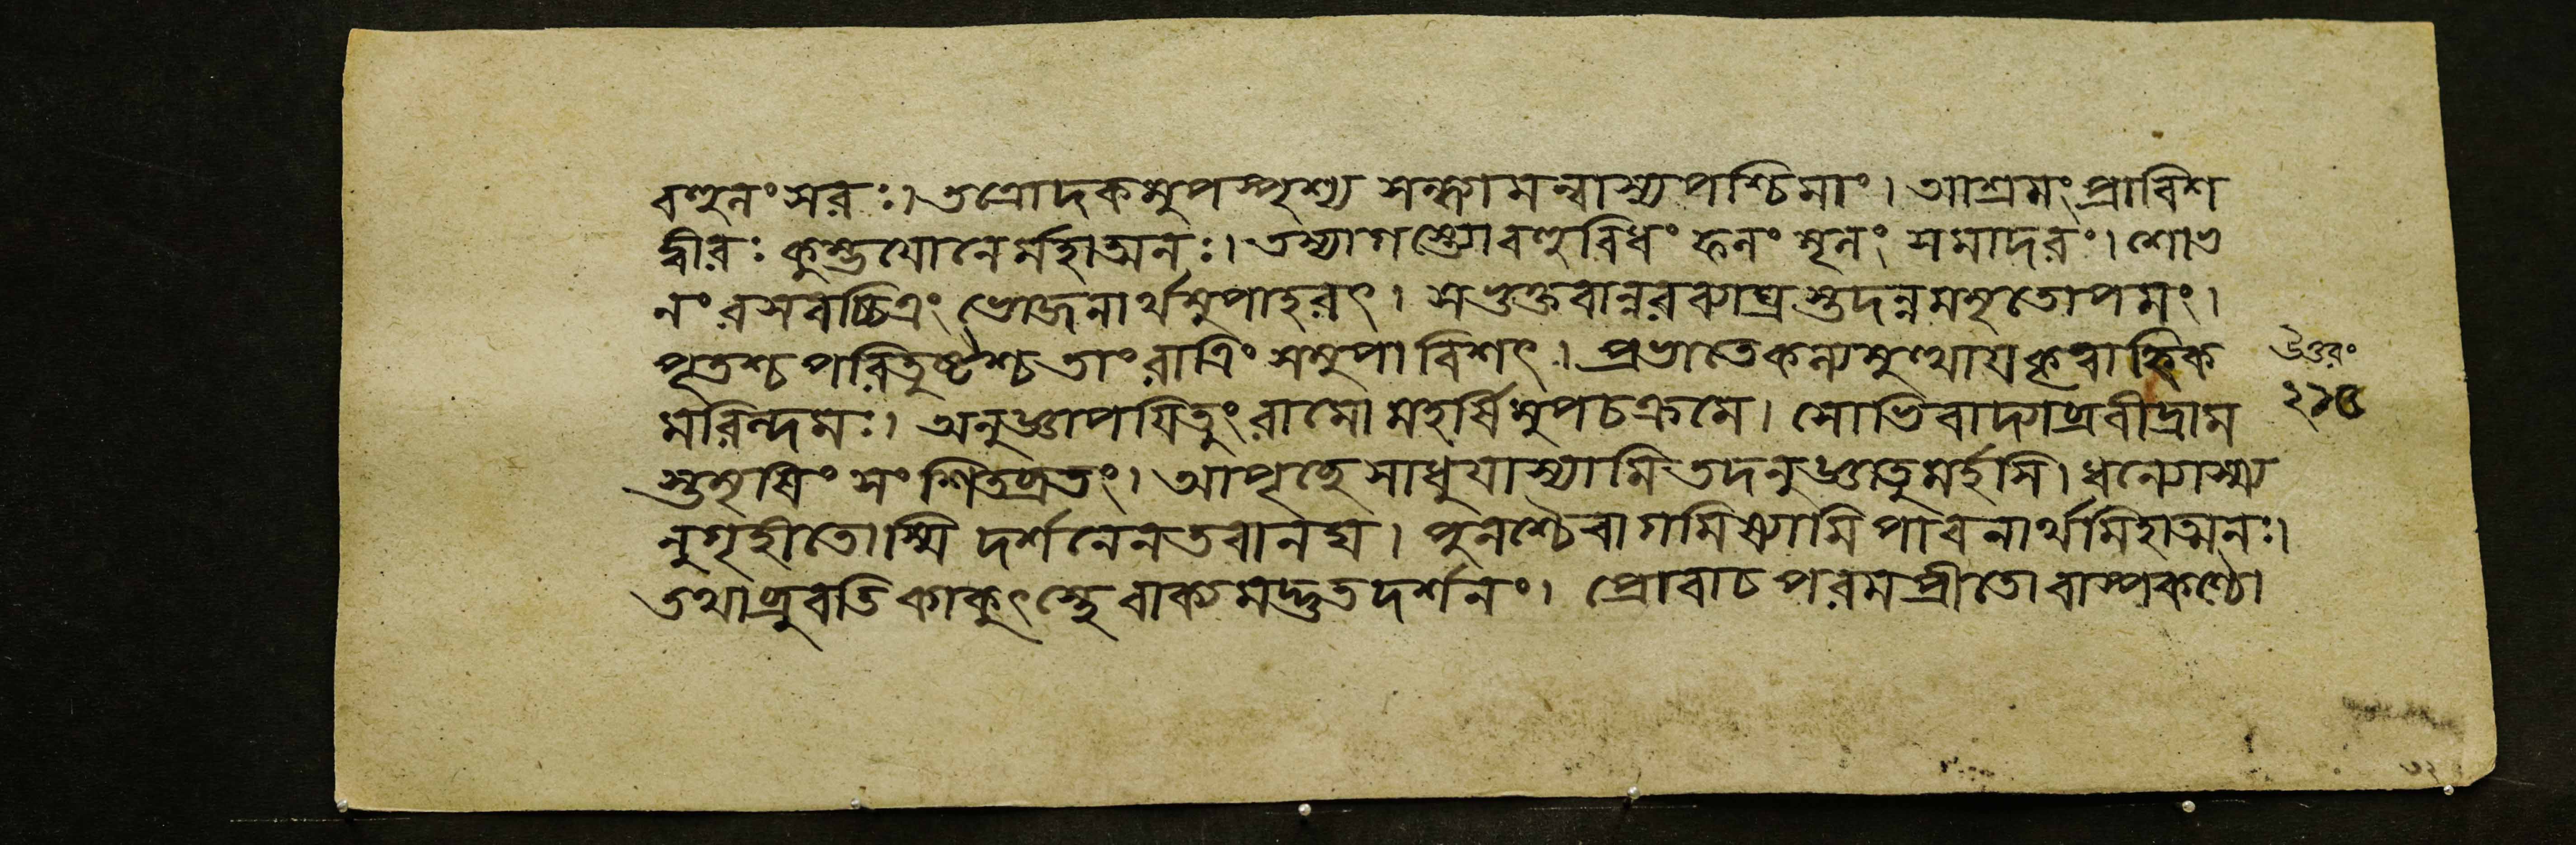 বশুনং সরঃ। তত্রোদকমুপস্পৃশ্য সন্ধ্যামন্বাস্যপশ্চিমাং। আশ্রমং প্রাবিশ
দ্বীরঃ কুম্ভযোনের্মহাত্মনঃ। তস্যাগস্ত্যোবহুবিধং ফলং মূলং সমাদরং। শোভ
নং রসবচ্চিত্রং ভোজনার্থমুপাহরৎ। সভুক্তবান্নরব্যাঘ্রস্তদন্নমমৃতোপমং।
পৃতশ্চ পরিতুষ্টশ্চ তাং রাত্রিং সমুপাবিশৎ। প্রভাতেকল্যমুত্থায়কৃত্বাহ্নিক
মরিন্দমঃ। অনুজ্ঞাপয়িতুং রামো মহর্ষিমুপচক্রমে। সোভিবাদ্যাব্রবীদ্রাম
স্তমৃষিং সংশিতব্রতং। আপৃচ্ছে সাধুযাস্যামি তদনুজ্ঞাতুমর্হসি। ধন্যোস্ম্য
নুগৃহীতোস্মি দর্শনেনতবানঘ। পুনশ্চৈবাগমিষ্যামি পাবনার্থমিহাত্মনঃ।
তথাব্রুবতি কাকুৎস্থে বাক্যমদ্ভুতদর্শনং। প্রোবাচ পরমপ্রীতো বাষ্পকণ্ঠো
উত্তরং